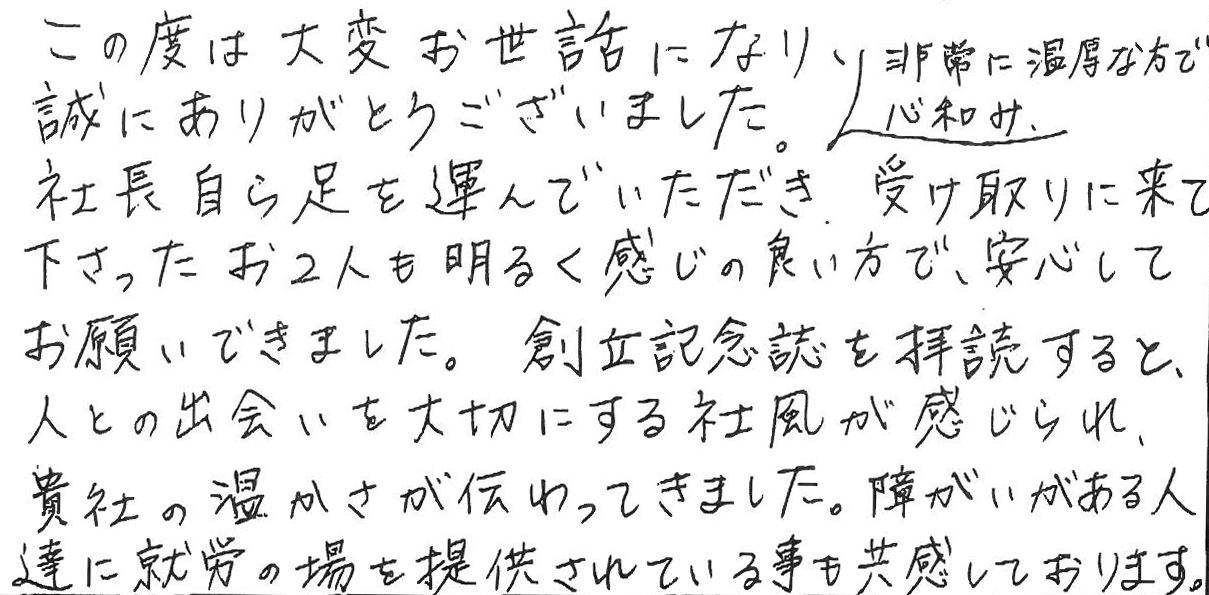 この度は大変お世話になり、
誠にありがとうございました。
非常に温厚な方で
心和み、
社長自ら足を運んでいただき、受け取りに来て
下さったお2人も明るく感じの良い方で、安心して
お願いできました。創立記念誌を拝読すると、
人との出会いを大切にする社風が感じられ、
貴社の温かさが伝わってきました。障がいがある人
達に就労の場を提供されている事も共感しております。